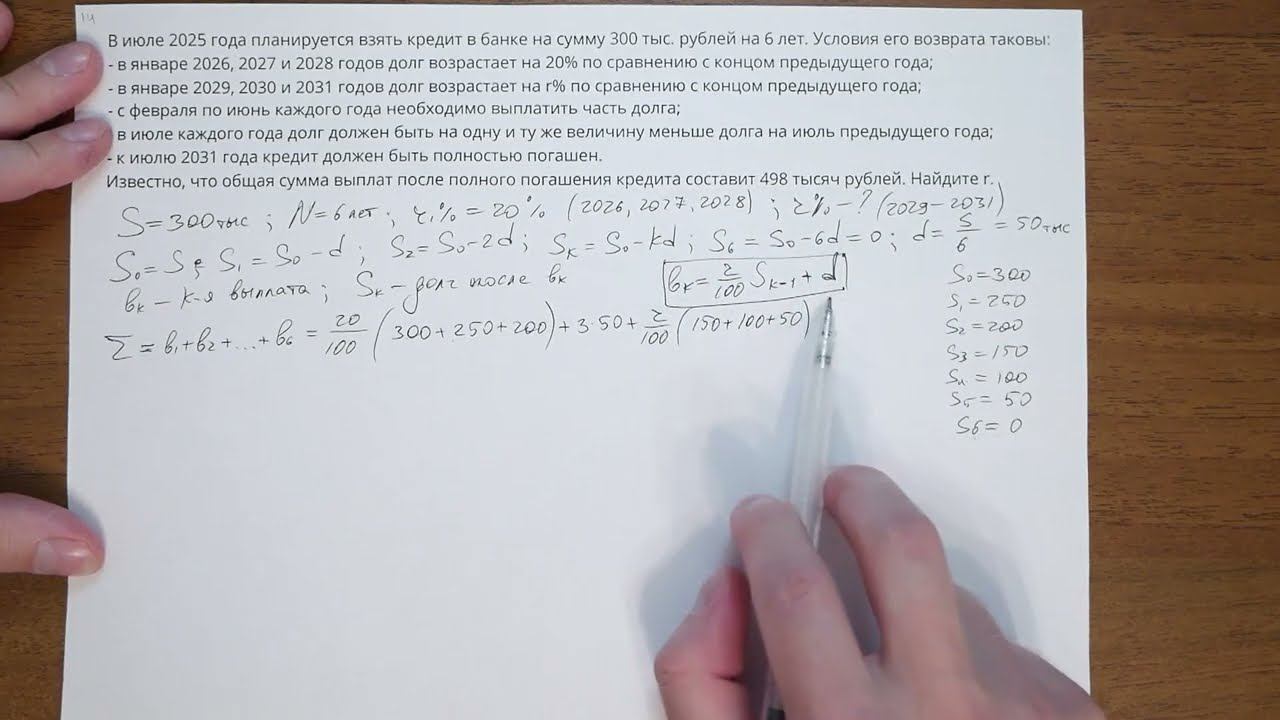 14
В июле 2025 года планируется взять кредит в банке на сумму 300 тыс. рублей на 6 лет. Условия его возврата таковы:
- в январе 2026, 2027 и 2028 годов долг возрастает на 20% по сравнению с концом предыдущего года;
- в январе 2029, 2030 и 2031 годов долг возрастает на r% по сравнению с концом предыдущего года;
- с февраля по июнь каждого года необходимо выплатить часть долга;
- в июле каждого года долг должен быть на одну и ту же величину меньше долга на июль предыдущего года;
- к июлю 2031 года кредит должен быть полностью погашен.
Известно, что общая сумма выплат после полного погашения кредита составит 498 тысяч рублей. Найдите r.
S=300тыс ; N=6 лет ; r₁% = 20% (2026, 2027, 2028) ; r% - ? (2029-2031)
S₀ = S ; S₁ = S₀ - d ; S₂ = S₀ - 2d ; Sк = S₀ - кd ; S₆ = S₀ - 6d = 0 ; d = S/6 = 50тыс
bк - к-я выплата ; Sк - долг после bк
bк = r/100 Sк-1 + d
Σ = b₁ + b₂ + ... + b₆ = 20/100 (300+250+200) + 3·50 + r/100 (150+100+50)
S₀ = 300
S₁ = 250
S₂ = 200
S₃ = 150
S₄ = 100
S₅ = 50
S₆ = 0